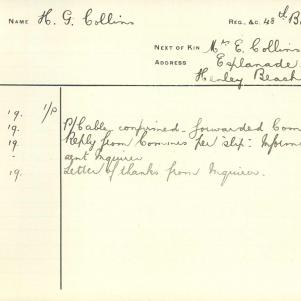 NAME H. G. Collins REG., &C. 48th B
NEXT OF KIN Mrs E. Collins
ADDRESS Esplanade
Henley Beach
19. 1/P
19. P/Cable confirmed - forwarded Com
19 Reply from Commrs per slip - Inform
- sent Inquirer
19. Letter of thanks from Inquirer.